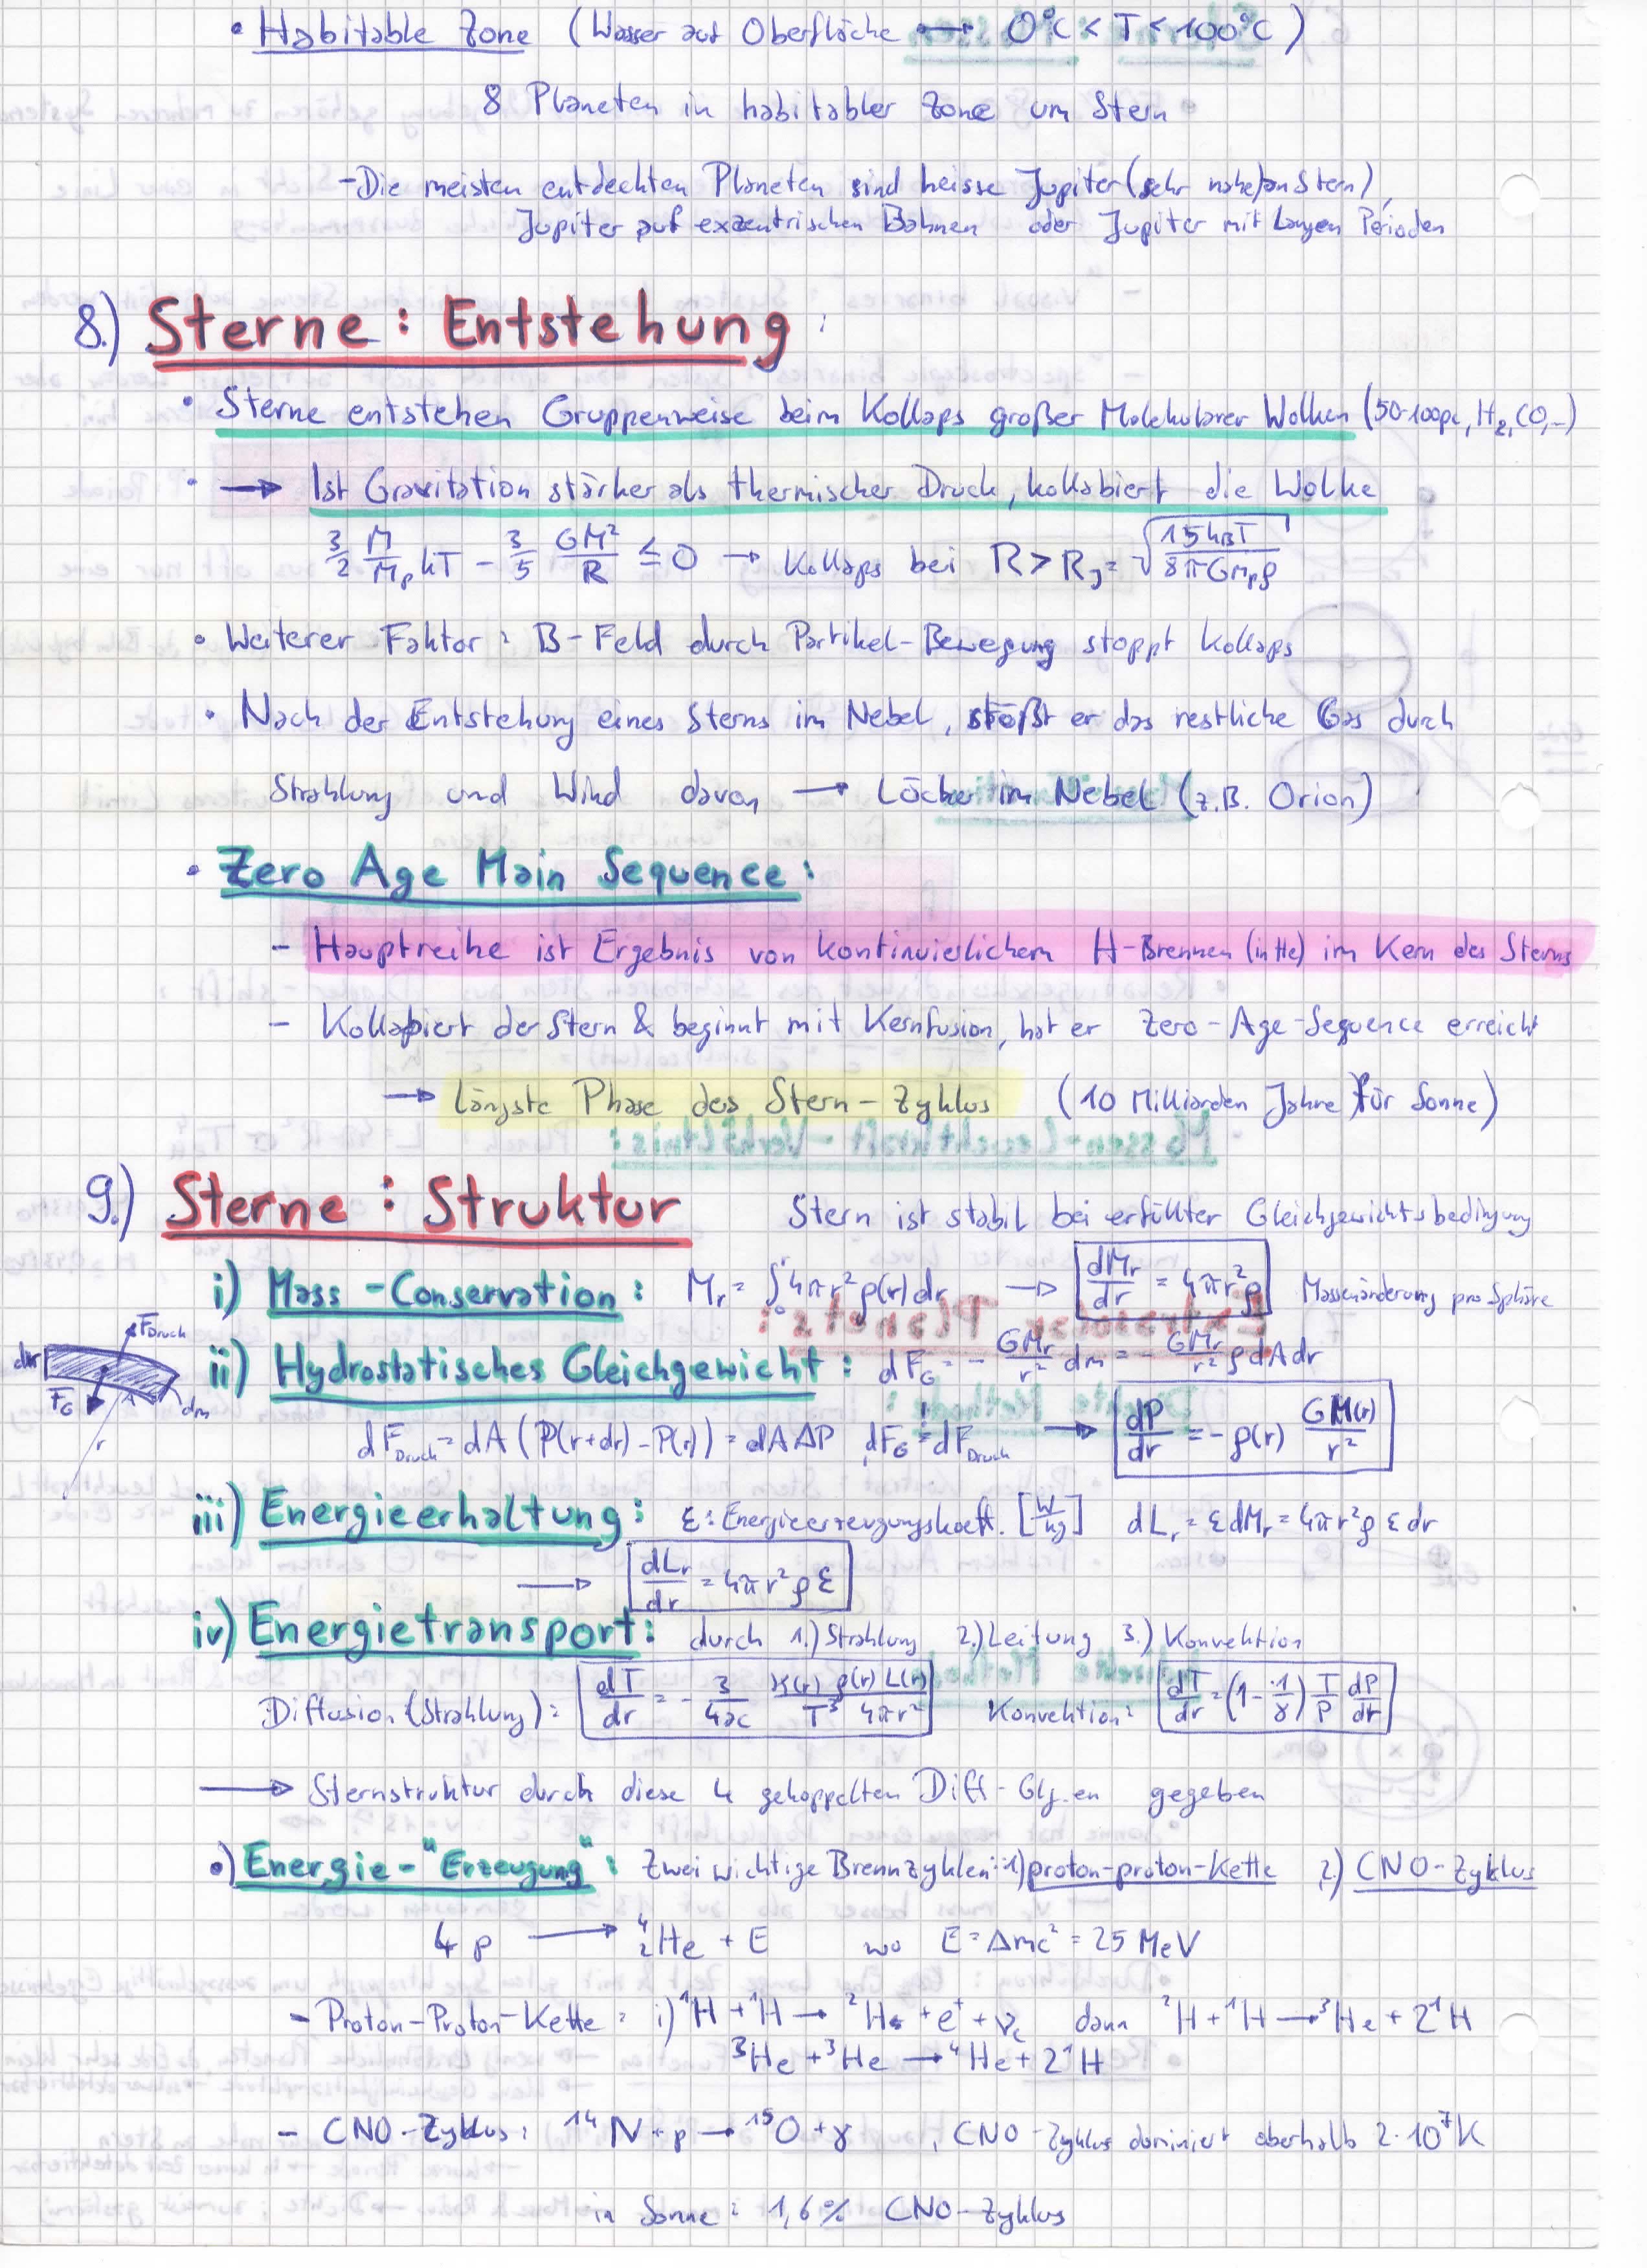 • Habitable Zone (Wasser auf Oberfläche ⟷ 0°C < T < 100°C)
8 Planeten in habitabler Zone um Stern
- Die meisten entdeckten Planeten sind heisse Jupiter (sehr nahe an Stern),
Jupiter auf exzentrischen Bahnen oder Jupiter mit langen Perioden
8.) Sterne: Entstehung
• Sterne entstehen Gruppenweise beim Kollaps großer Molekularer Wolken (50-100pc, H₂, CO,...)
• → Ist Gravitation stärker als thermischer Druck, kollabiert die Wolke
3/2 M/Mₚ kT - 3/5 GM²/R ≤ 0 → Kollaps bei R > R_J = √(15 k_B T / 8πGmₚρ)
• Weiterer Faktor: B-Feld durch Partikel-Bewegung stoppt Kollaps
• Nach der Entstehung eines Sterns im Nebel, stößt er das restliche Gas durch
Strahlung und Wind davon → Löcher im Nebel (z.B. Orion)
• Zero Age Main Sequence:
- Hauptreihe ist Ergebnis von kontinuierlichem H-Brennen (in He) im Kern des Sterns
- Kollabiert der Stern & beginnt mit Kernfusion, hat er Zero-Age-Sequence erreicht
→ längste Phase des Stern-Zyklus (10 Milliarden Jahre für Sonne)
9.) Sterne: Struktur Stern ist stabil bei erfüllter Gleichgewichtsbedingung
i) Mass-Conservation: Mᵣ = ∫₀ʳ 4πr²ρ(r)dr → dMᵣ/dr = 4πr²ρ Massenänderung pro Sphäre
F_Druck
dr
F_G
A
dm
r
ii) Hydrostatisches Gleichgewicht: dF_G = - GMᵣ/r² dm = - GMᵣ/r² ρ dA dr
dF_Druck = dA (P(r+dr) - P(r)) = dA ΔP, dF_G =! dF_Druck → dP/dr = -ρ(r) GM(r)/r²
iii) Energieerhaltung: ε: Energieerzeugungskoeff. [W/kg] dLᵣ = ε dMᵣ = 4πr²ρ ε dr
→ dLᵣ/dr = 4πr²ρε
iv) Energietransport: durch 1.) Strahlung 2.) Leitung 3.) Konvektion
Diffusion (Strahlung): dT/dr = - 3/4ac ϰ(r) ρ(r)/T³ L(r)/4πr² Konvektion: dT/dr = (1 - 1/γ) T/P dP/dr
→ Sternstruktur durch diese 4 gekoppelten Diff-Glg.en gegeben
•) Energie-"Erzeugung": Zwei wichtige Brennzyklen: 1) proton-proton-Kette 2.) CNO-Zyklus
4 p → ⁴₂He + E wo E = Δmc² = 25 MeV
- Proton-Proton-Kette: i) ¹H + ¹H → ²He + e⁺ + νₑ dann ²H + ¹H → ³He + 2¹H
³He + ³He → ⁴He + 2¹H
- CNO-Zyklus: ¹⁴N + p → ¹⁵O + γ, CNO-Zyklus dominiert oberhalb 2·10⁷K
in Sonne: 1,6% CNO-Zyklus